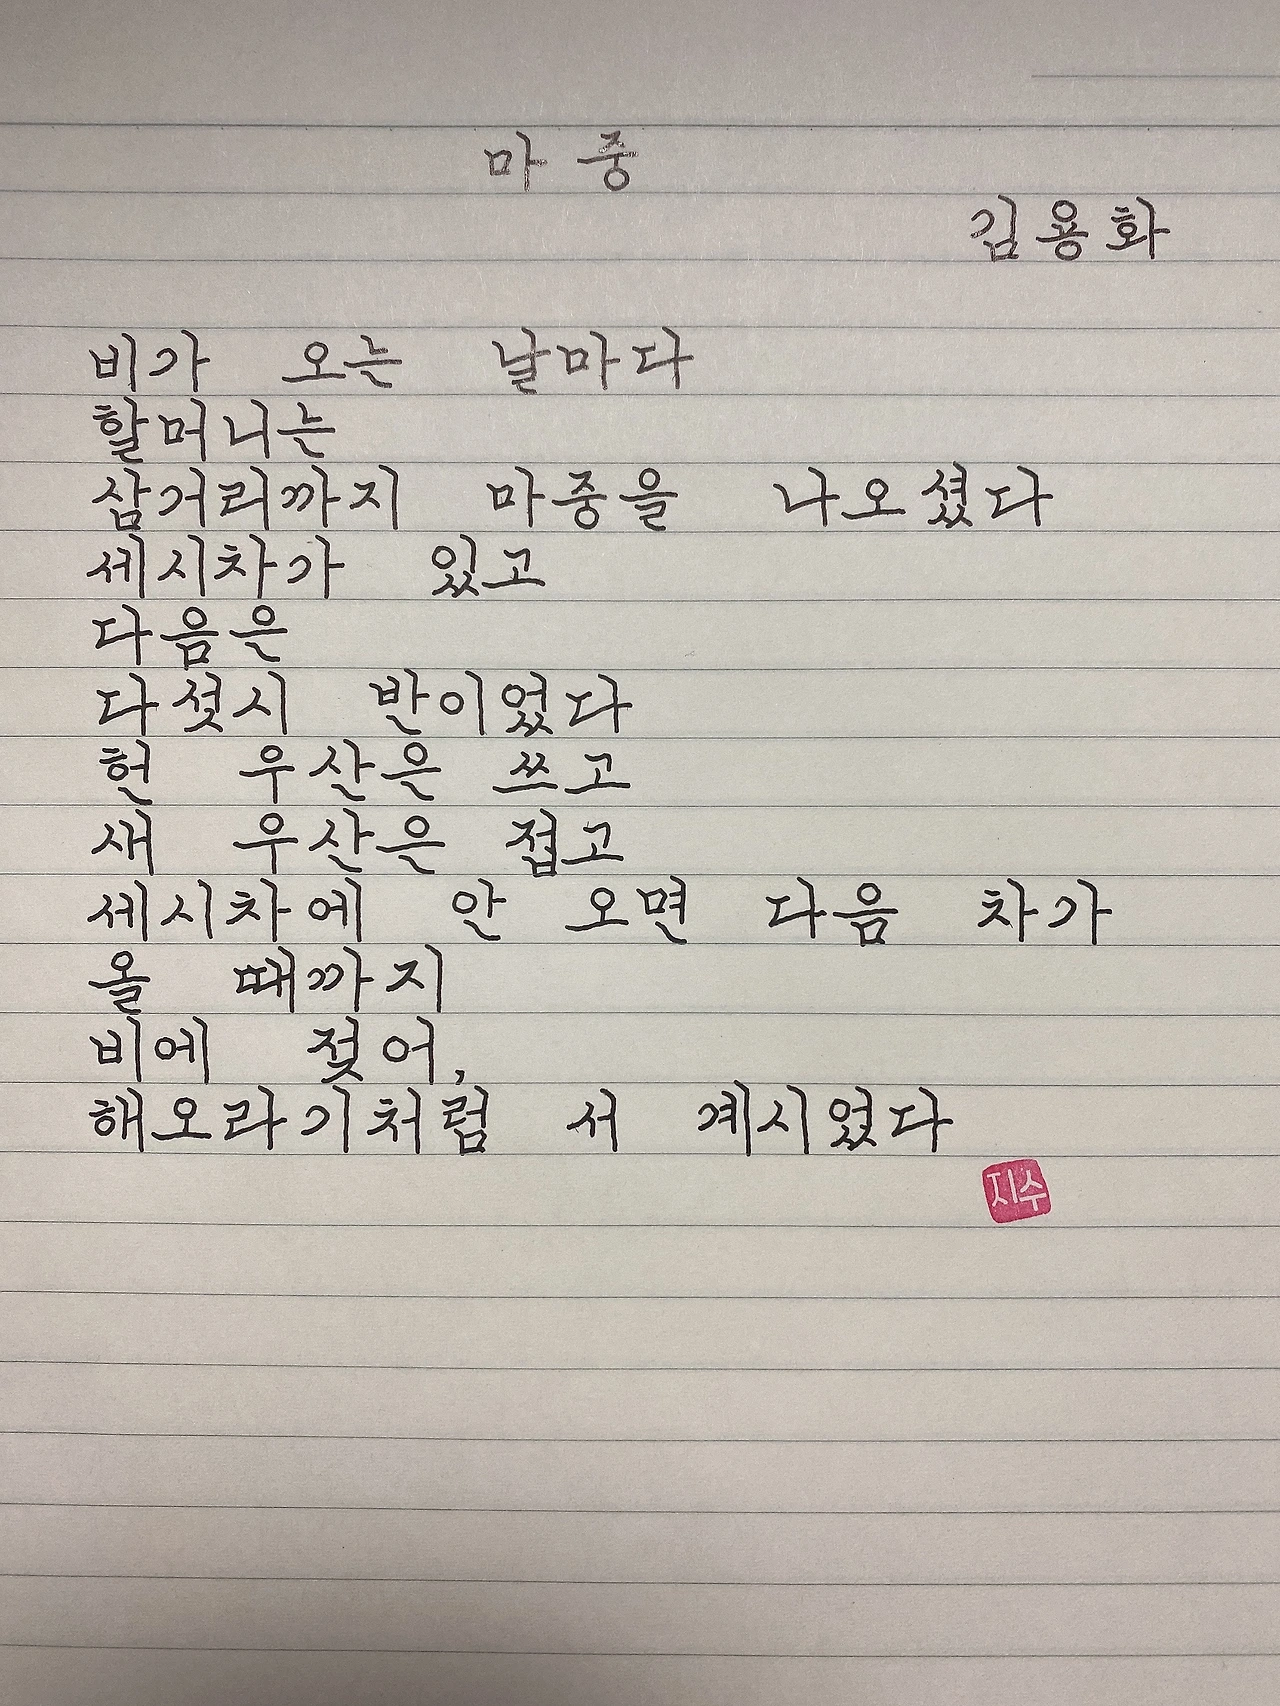 마 중
김용화
비가 오는 날마다
할머니는
삼거리까지 마중을 나오셨다
세시차가 있고
다음은
다섯시 반이었다
헌 우산은 쓰고
새 우산은 접고
세시차에 안 오면 다음 차가
올 때까지
비에 젖어,
해오라기처럼 서 계시었다
지수